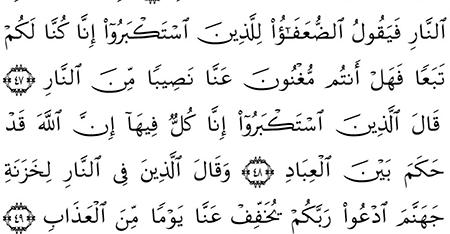 ٱلنَّارِ فَيَقُولُ ٱلضُّعَفَـٰٓؤُا۟ لِلَّذِينَ ٱسْتَكْبَرُوٓا۟ إِنَّا كُنَّا لَكُمْ
تَبَعًا فَهَلْ أَنتُم مُّغْنُونَ عَنَّا نَصِيبًا مِّنَ ٱلنَّارِ ﴿٤٧﴾
قَالَ ٱلَّذِينَ ٱسْتَكْبَرُوٓا۟ إِنَّا كُلٌّ فِيهَآ إِنَّ ٱللَّهَ قَدْ
حَكَمَ بَيْنَ ٱلْعِبَادِ ﴿٤٨﴾ وَقَالَ ٱلَّذِينَ فِى ٱلنَّارِ لِخَزَنَةِ
جَهَنَّمَ ٱدْعُوا۟ رَبَّكُمْ يُخَفِّفْ عَنَّا يَوْمًا مِّنَ ٱلْعَذَابِ ﴿٤٩﴾